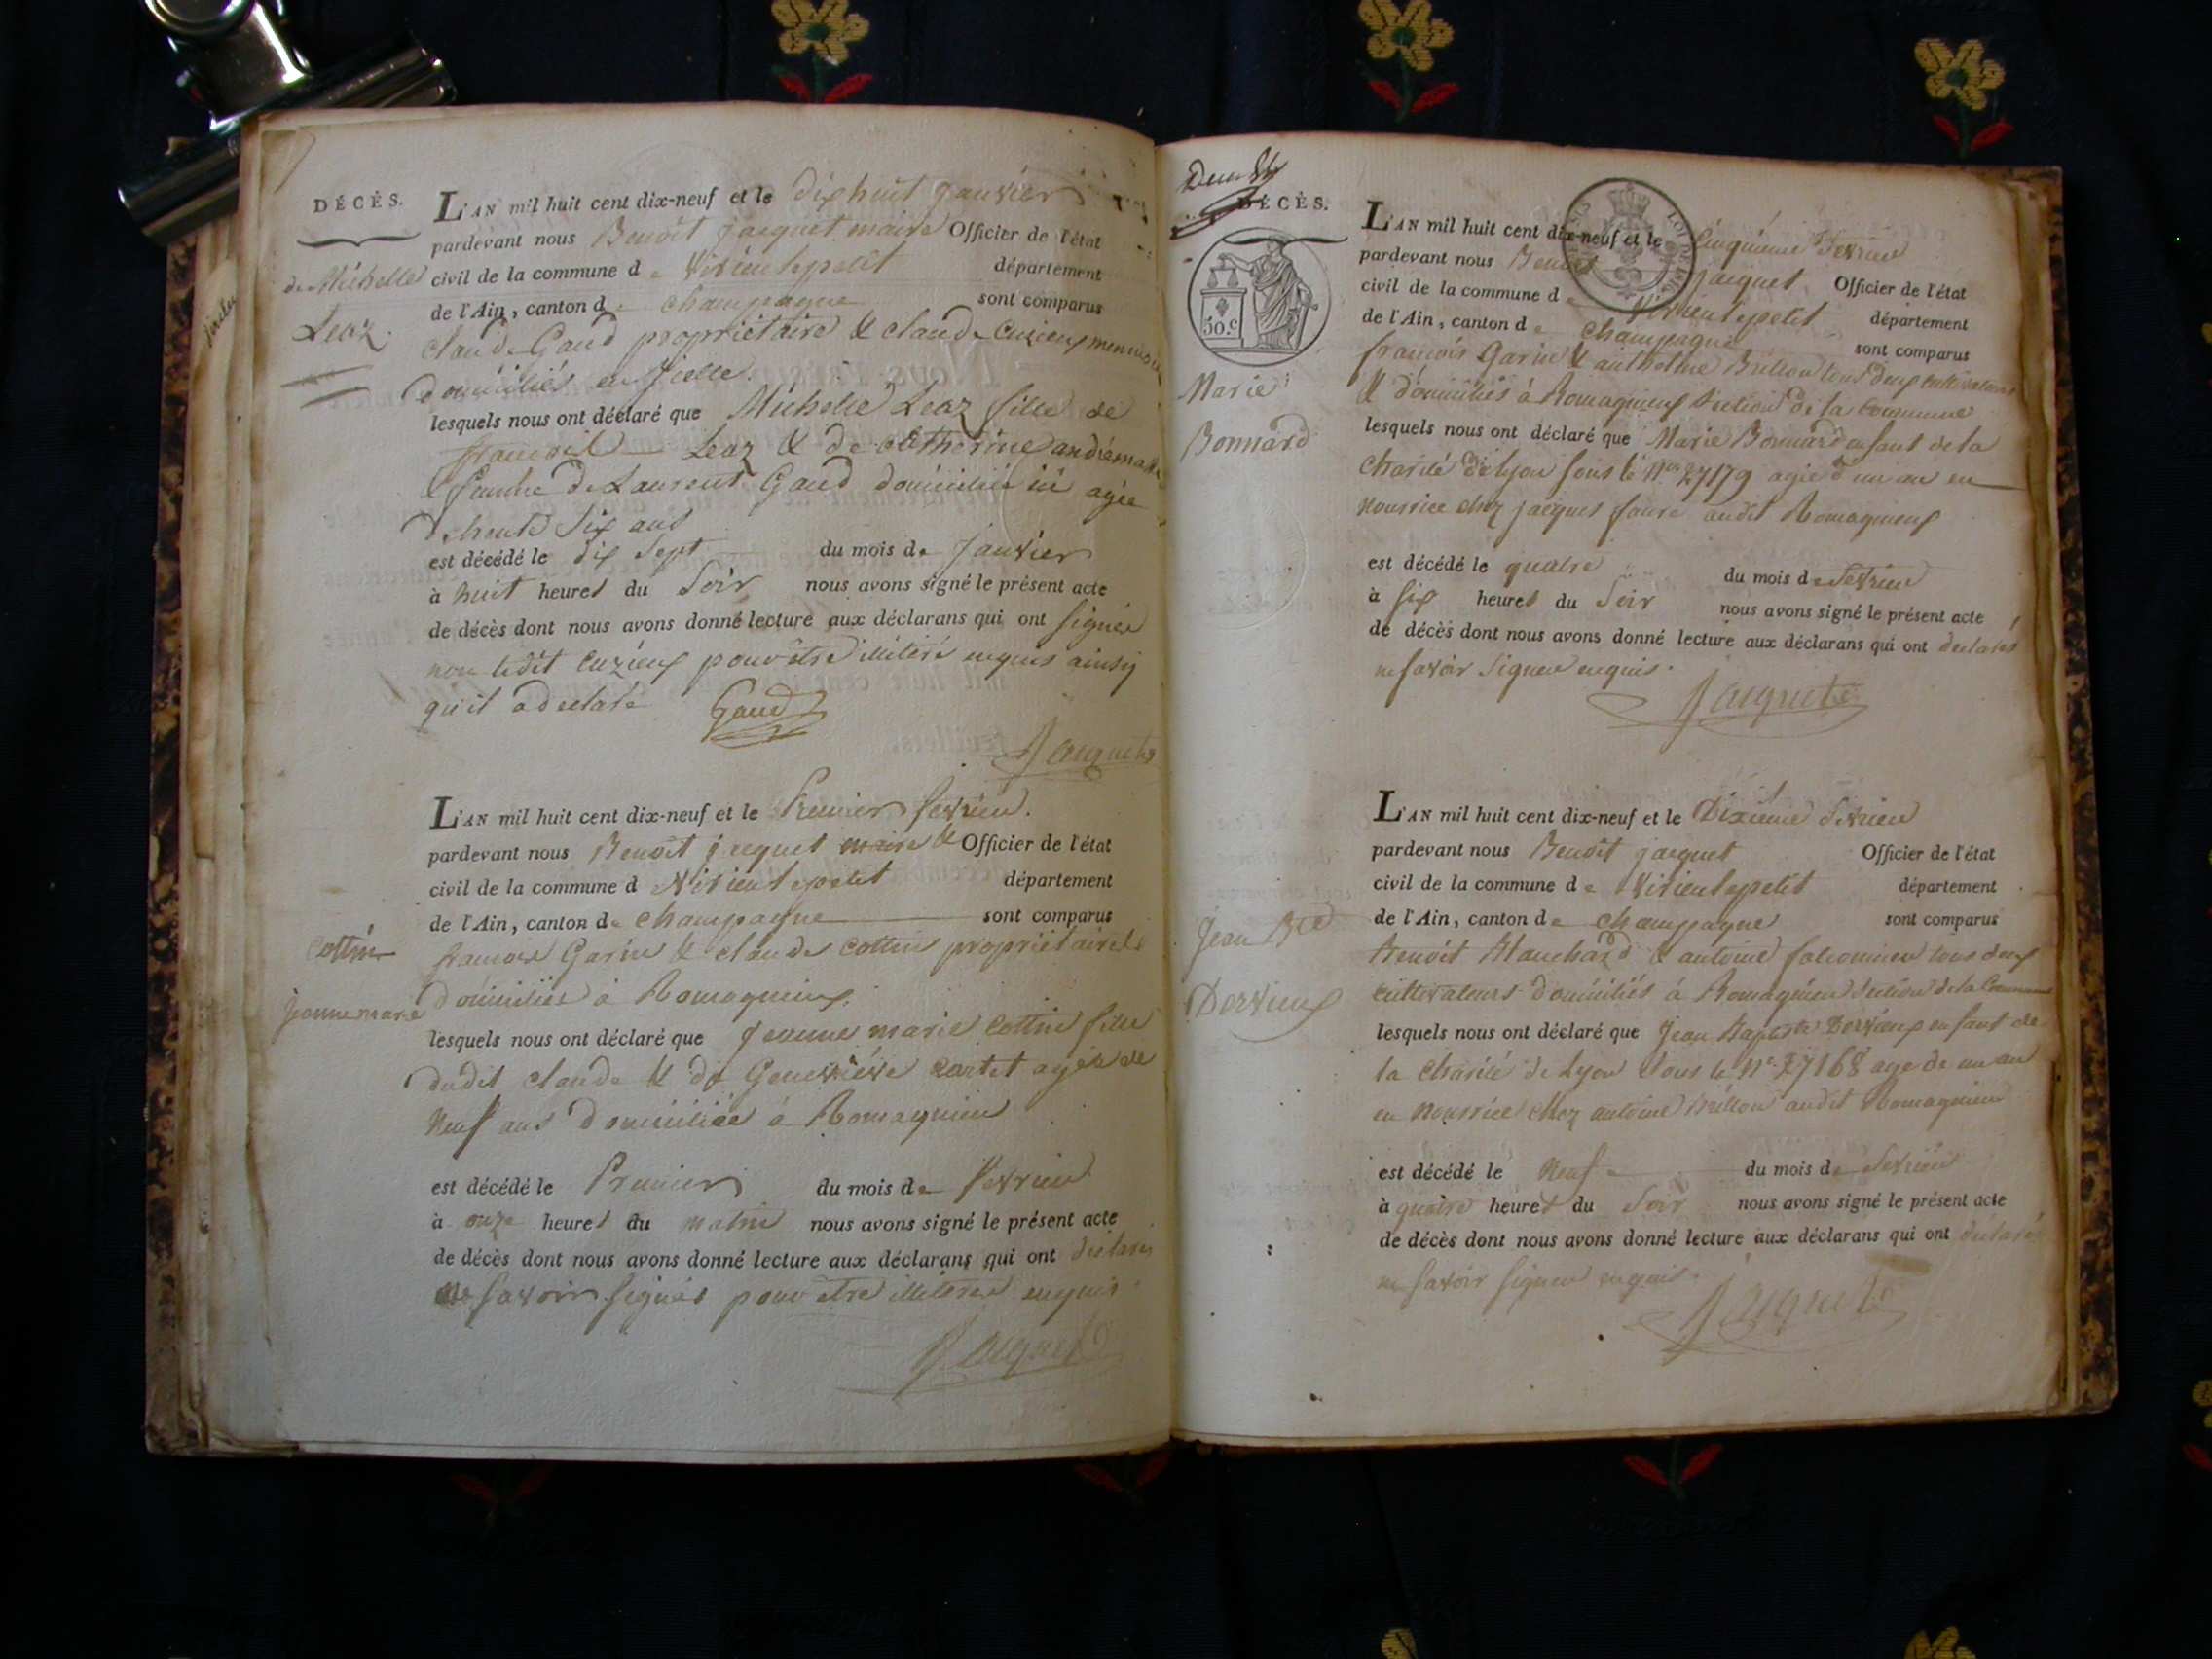 DÉCÈS.
de Michelle
Leaz.
L'AN mil huit cent dix-neuf et le dix huit janvier
pardevant nous Benoît jacquet maire Officier de l'état
civil de la commune de Virieu le petit département
de l'Ain, canton de champagne sont comparus
claude Gaud propriétaire & claude Cuzieux
domiciliés en
lesquels nous ont déclaré que Michelle Leaz fille de
françois Leaz & de catherine
femme de Laurent Gaud domicilié ici agée
de trente six ans
est décédé le dix sept du mois de janvier
à huit heures du soir nous avons signé le présent acte
de décès dont nous avons donné lecture aux déclarans qui ont signés
non ledit Cuzieux pour être illitéré enquis ainsy
qu'il a declaré Gaud
Jacquet
cottin
jeanne marie
L'AN mil huit cent dix-neuf et le Premier fevrier.
pardevant nous Benoît jacquet maire & Officier de l'état
civil de la commune d Virieu le petit département
de l'Ain, canton de champagne sont comparus
françois Garin & claude cottin propriétaires
domiciliés à Romagnieux
lesquels nous ont déclaré que jeanne marie cottin fille
dudit claude & de Genevièive cartet agée de
neuf ans domiciliée à Romagnieu
est décédé le Premier du mois de fevrier
à onze heures du matin nous avons signé le présent acte
de décès dont nous avons donné lecture aux déclarans qui ont declarés
ne savoir signer pour être illiteré enquis
Jacquet
DÉCÈS.
30.c
Marie
Bonnard
L'AN mil huit cent dix-neuf et le cinquieme fevrier
pardevant nous Benoît jacquet Officier de l'état
civil de la commune de Virieu le petit département
de l'Ain, canton de champagne sont comparus
françois Garin & anthelme Brillon tous deux cultivateurs
& domiciliés à Romagnieux section de la commune
lesquels nous ont déclaré que Marie Bonnard enfant de la
charité de Lyon sous le No 27179 agée d'un an en
nourrice chez jacques faure audit Romagnieux
est décédé le quatre du mois de fevrier
à six heures du soir nous avons signé le présent acte
de décès dont nous avons donné lecture aux déclarans qui ont declarés
ne savoir signer enquis.
Jacquet
Jean Bte
Dervieux
L'AN mil huit cent dix-neuf et le Dixieme fevrier
pardevant nous Benoît jacquet Officier de l'état
civil de la commune de Virieu le petit département
de l'Ain, canton de champagne sont comparus
Benoît Blanchard & antoine falconnier tous deux
cultivateurs domiciliés à Romagnieu section de la Commune
lesquels nous ont déclaré que jean Baptiste Dervieux enfant de
la charité de Lyon sous le No 27168 age de un an
en nourrice chez antoine Brillon audit Romagnieu
est décédé le neuf du mois de fevrier
à quatre heures du soir nous avons signé le présent acte
de décès dont nous avons donné lecture aux déclarans qui ont declarés
ne savoir signer enquis.
Jacquet